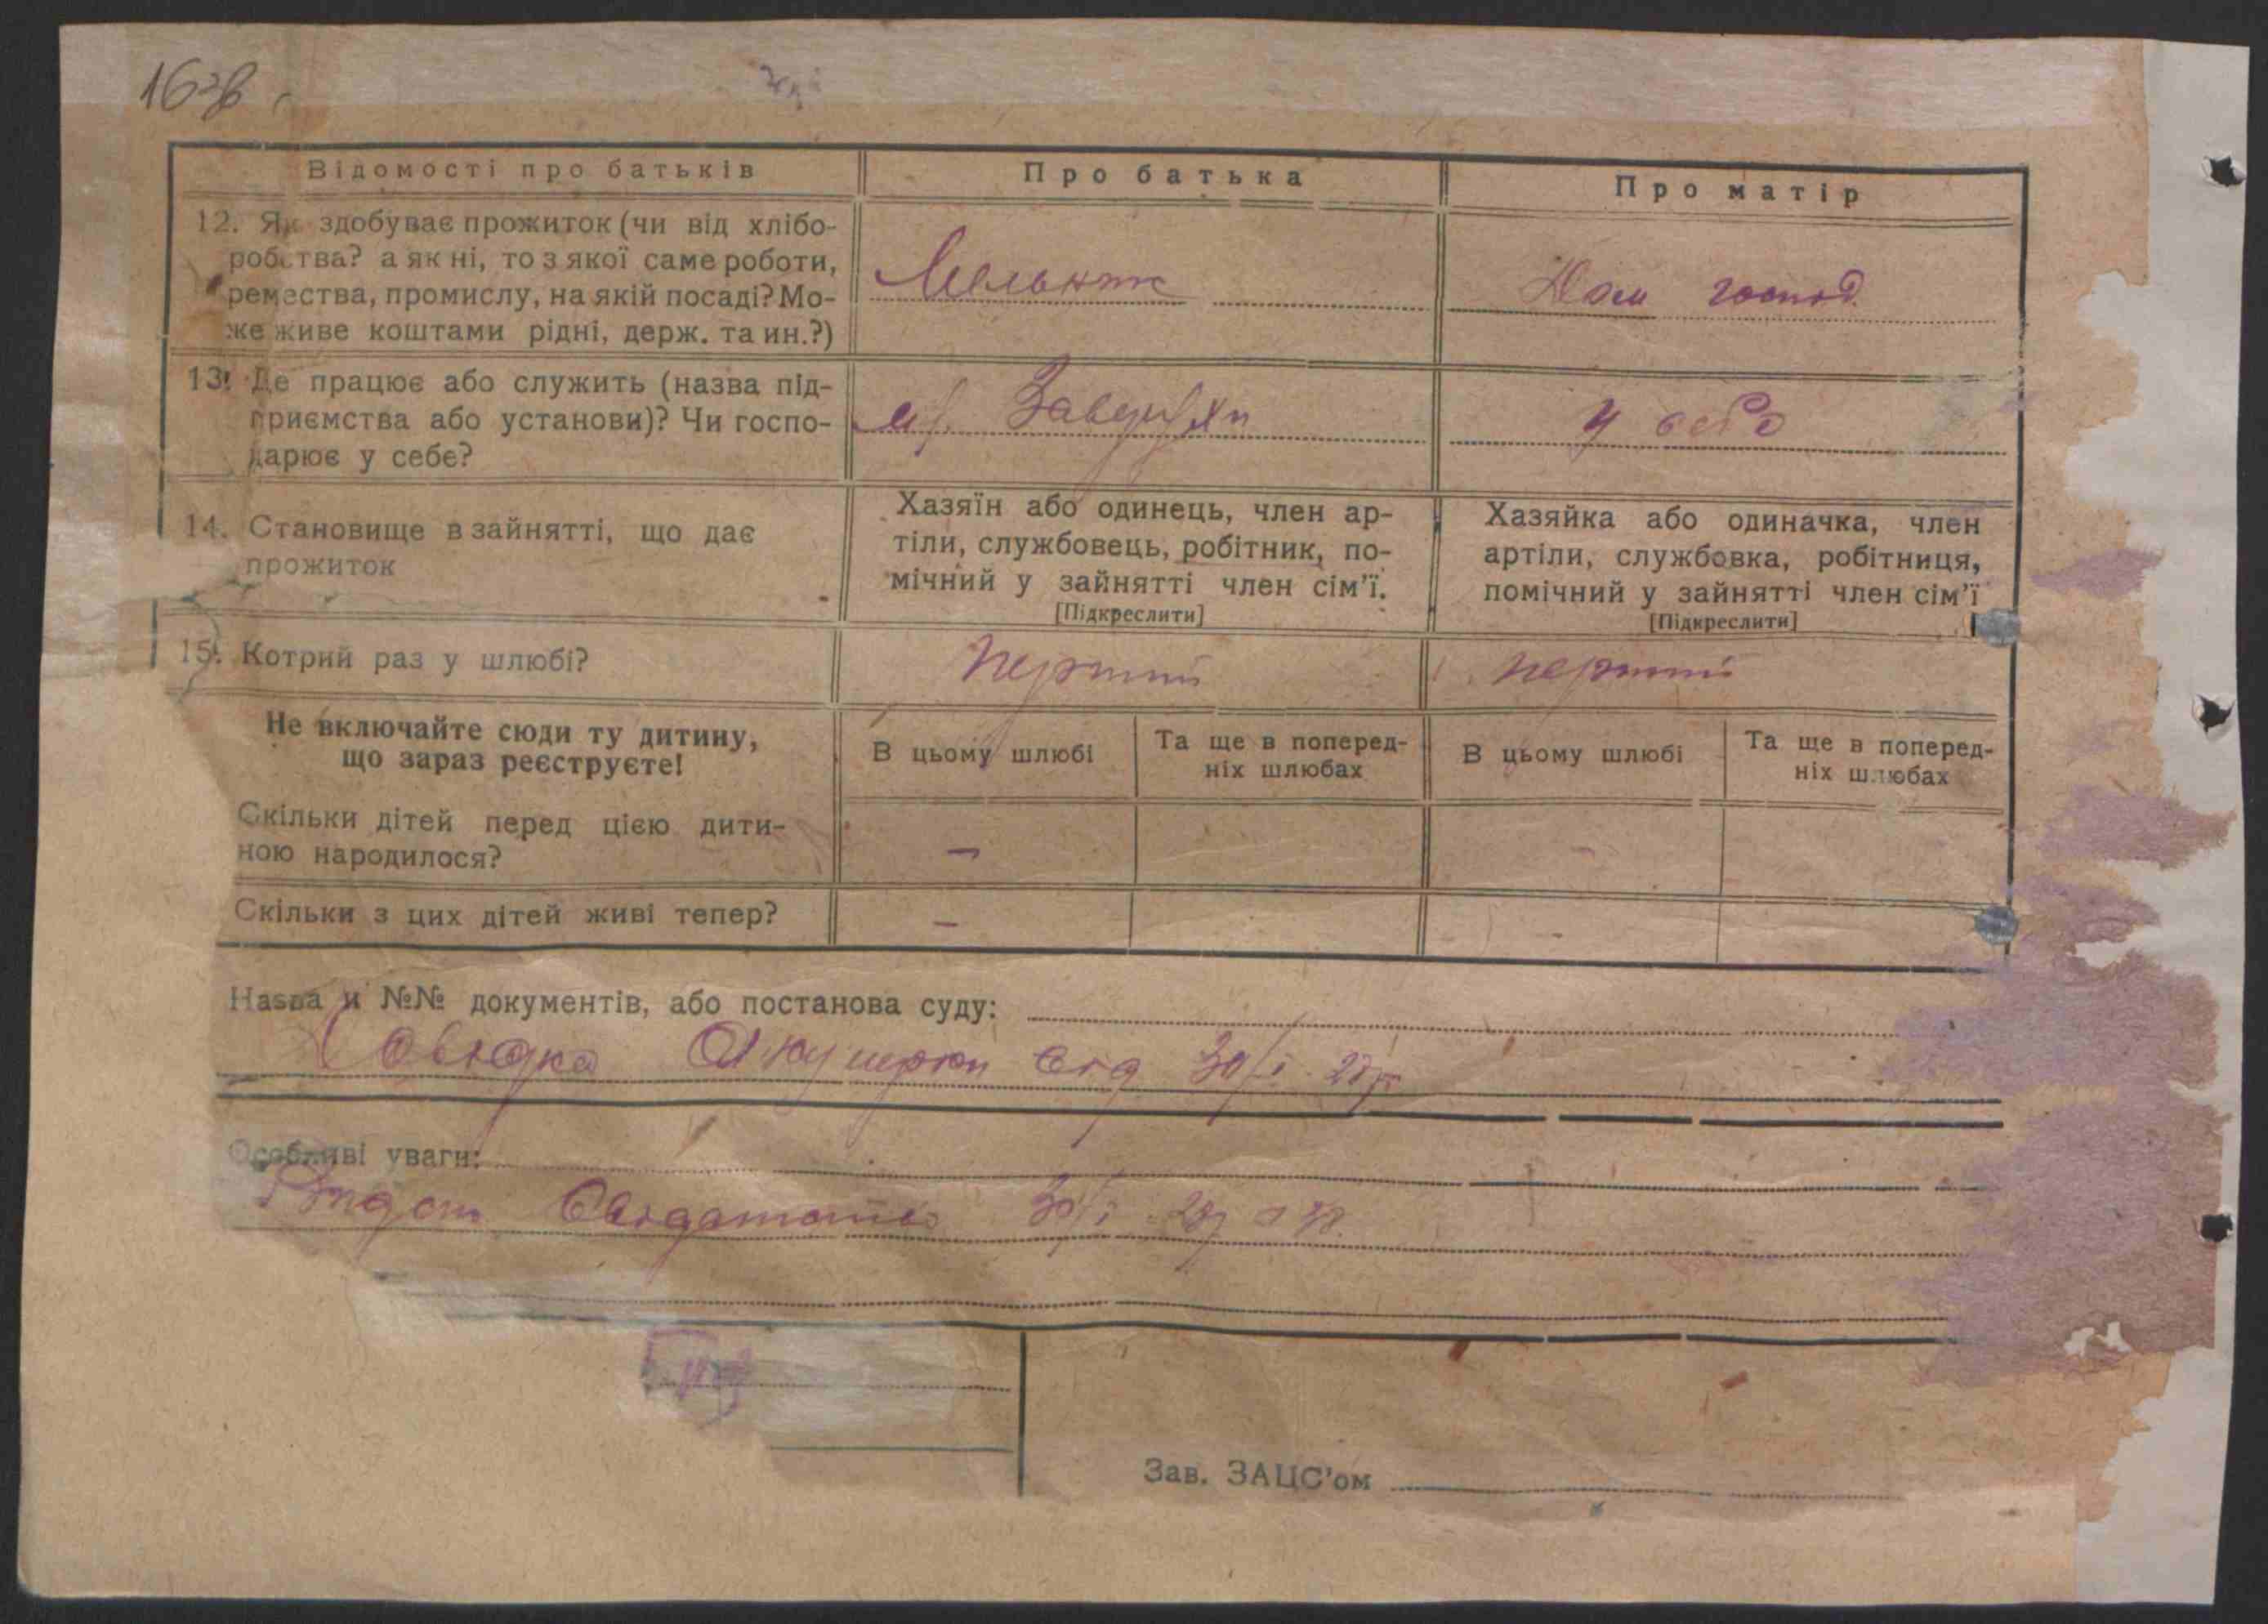 163в
Відомості про батьків
Про батька
Про матір
12. Як здобуває прожиток (чи від хлібо-
робства? а як ні, то з якої саме роботи,
ремества, промислу, на якій посаді? Мо-
же живе коштами рідні, держ. та ин.?)
Мельник
Дом господ.
13. Де працює або служить (назва під-
приємства або установи)? Чи госпо-
дарює у себе?
у себе
14. Становище в зайнятті, що дає
прожиток
Хазяїн або одинець, член ар-
тіли, службовець, робітник, по-
мічний у зайнятті член сім'ї.
[Підкреслити]
Хазяйка або одиначка, член
артіли, службовка, робітниця,
помічний у зайнятті член сім'ї
[Підкреслити]
15. Котрий раз у шлюбі?
перший
перший
Не включайте сюди ту дитину,
що зараз реєструєте!
В цьому шлюбі
Та ще в поперед-
ніх шлюбах
В цьому шлюбі
Та ще в поперед-
ніх шлюбах
Скільки дітей перед цією дити-
ною народилося?
–
–
Скільки з цих дітей живі тепер?
–
–
Назва й №№ документів, або постанова суду:
Довідка Акушерки від 30/I
Особливі уваги:
30/I
Зав. ЗАЦС'ом